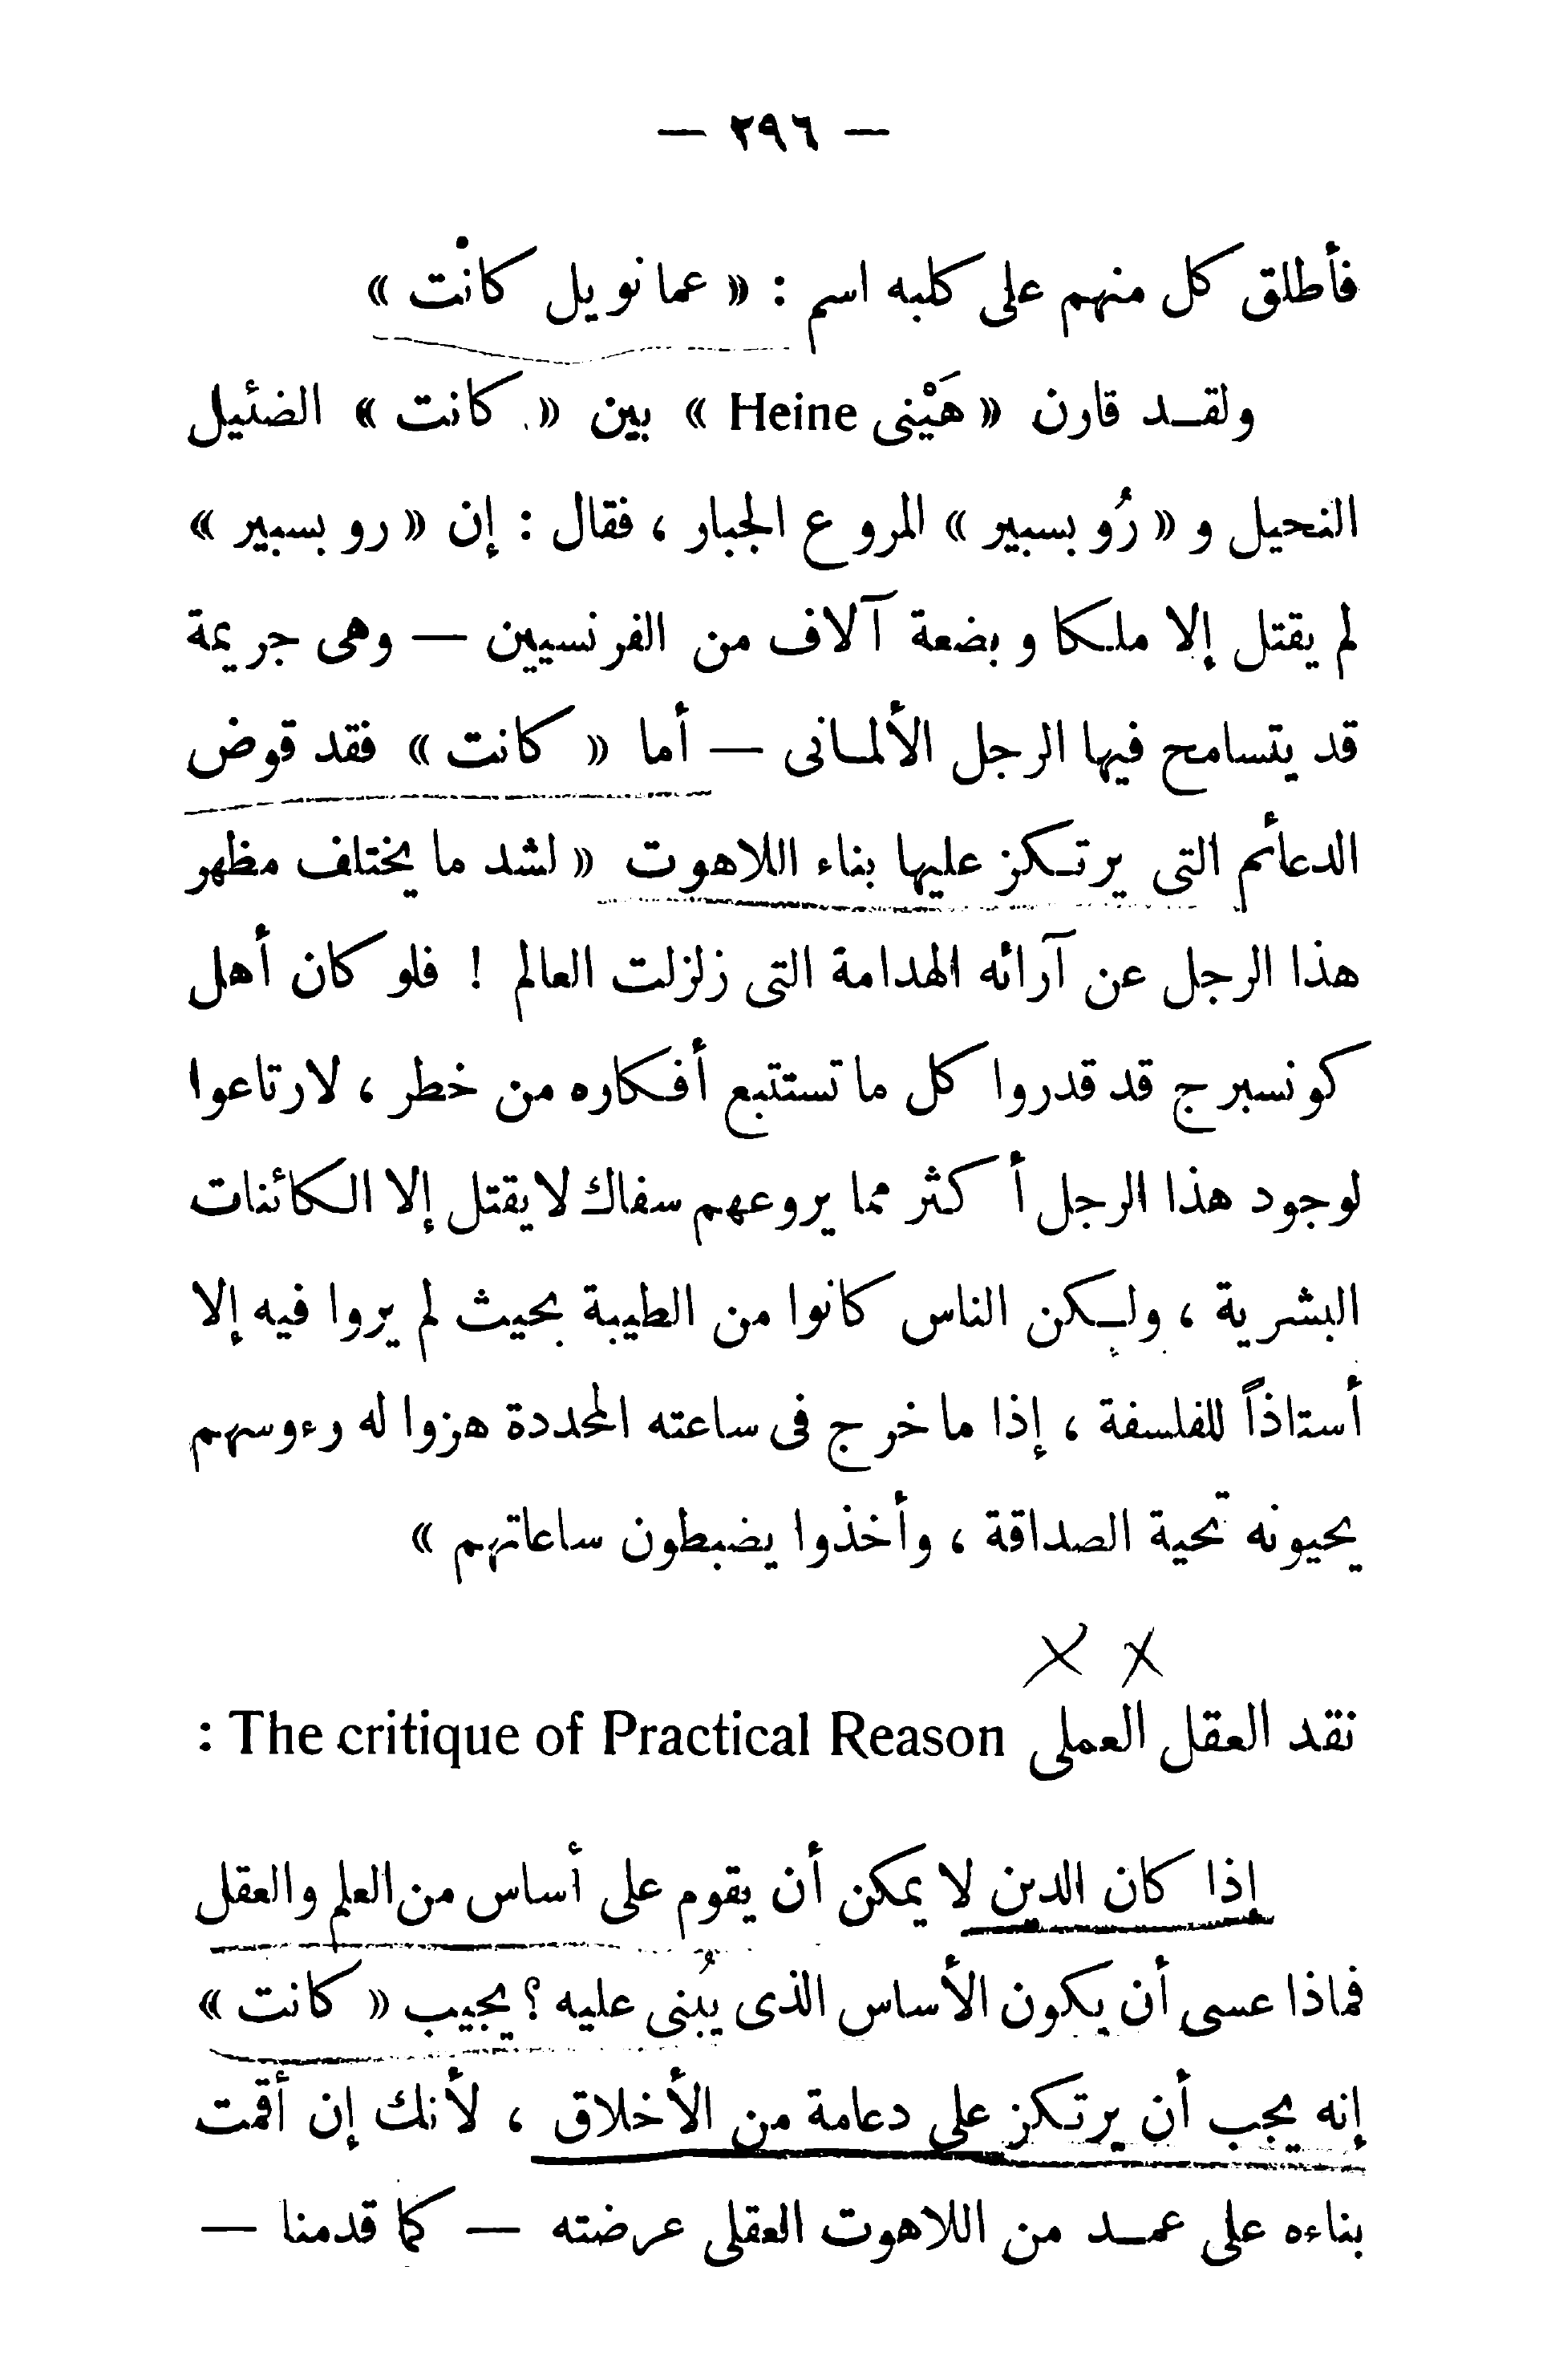 — ٢٩٦ —
فأطلق كل منهم على كلبه اسم : « عمانويل كانْت »
ولقد قارن « هَيْنى Heine » بين « كانت » الضئيل
النحيل و « رُوبسبير » المروع الجبار ، فقال : إن « روبسبير »
لم يقتل إلا ملكا وبضعة آلاف من الفرنسيين — وهى جريمة
قد يتسامح فيها الرجل الألمانى — أما « كانت » فقد قوض
الدعائم التى يرتكز عليها بناء اللاهوت « لشد ما يختلف مظهر
هذا الرجل عن آرائه الهدامة التى زلزلت العالم ! فلو كان أهل
كونسبرج قد قدروا كل ما تستتبع أفكاره من خطر ، لارتاعوا
لوجود هذا الرجل أكثر مما يروعهم سفاك لا يقتل إلا الكائنات
البشرية ، ولكن الناس كانوا من الطيبة بحيث لم يروا فيه إلا
أستاذاً للفلسفة ، إذا ما خرج فى ساعته المحددة هزوا له رءوسهم
يحيونه تحية الصداقة ، وأخذوا يضبطون ساعاتهم »
نقد العقل العملى The critique of Practical Reason :
إذا كان الدين لا يمكن أن يقوم على أساس من العلم والعقل
فماذا عسى أن يكون الأساس الذى يُبنى عليه ؟ يجيب « كانت »
إنه يجب أن يرتكز على دعامة من الأخلاق ، لأنك إن أقمت
بناءه على عمد من اللاهوت العقلى عرضته — كما قدمنا —